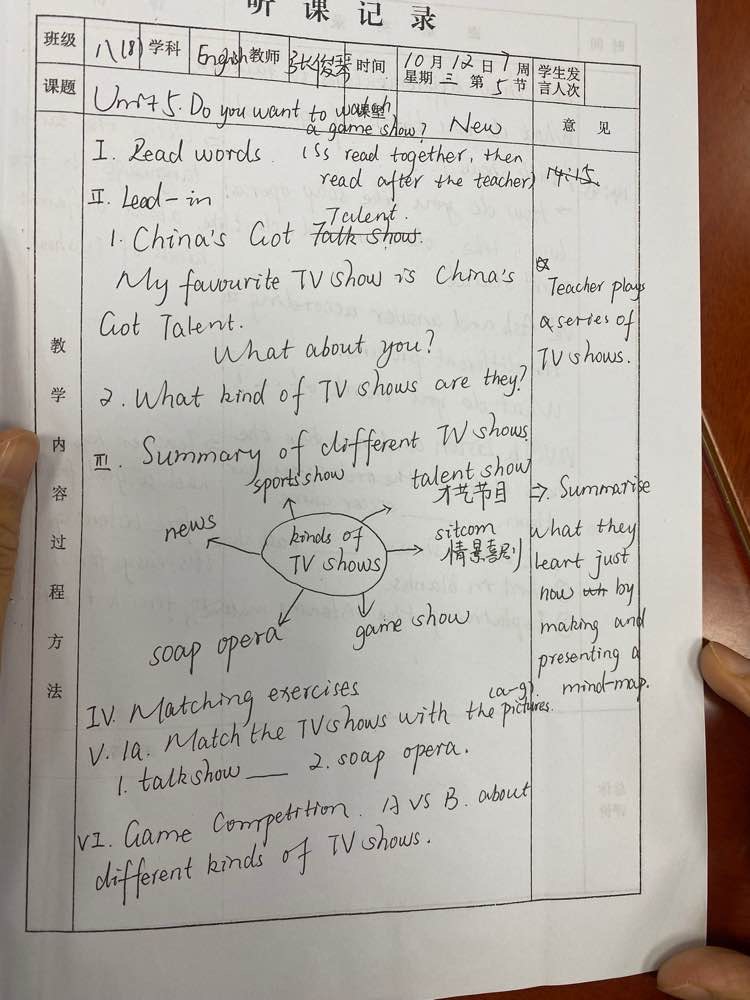 听课记录
班级 八(8) 学科 English 教师 张俊琴 时间 10月12日7周 星期三 第5节 学生发言人次
课题 Unit 5. Do you want to watch a game show? 课型 New 意见
教学内容过程方法
I. Read words. (Ss read together, then
read after the teacher) 14:15.
II. Lead-in
1. China's Got Talk Show. Talent.
My favourite TV show is China's
Got Talent.
What about you?
Teacher plays
a series of
TV shows.
2. What kind of TV shows are they?
III. Summary of different TV shows
sports show
talent show
才艺节目
news
kinds of
TV shows
sitcom
情景喜剧
soap opera
game show
⇒ Summarise
what they
leart just
now by
making and
presenting a
mind-map.
IV. Matching exercises
V. 1a. Match the TV shows with the pictures. (a-g).
1. talk show ___ 2. soap opera.
VI. Game Competition. A vs B. about
different kinds of TV shows.